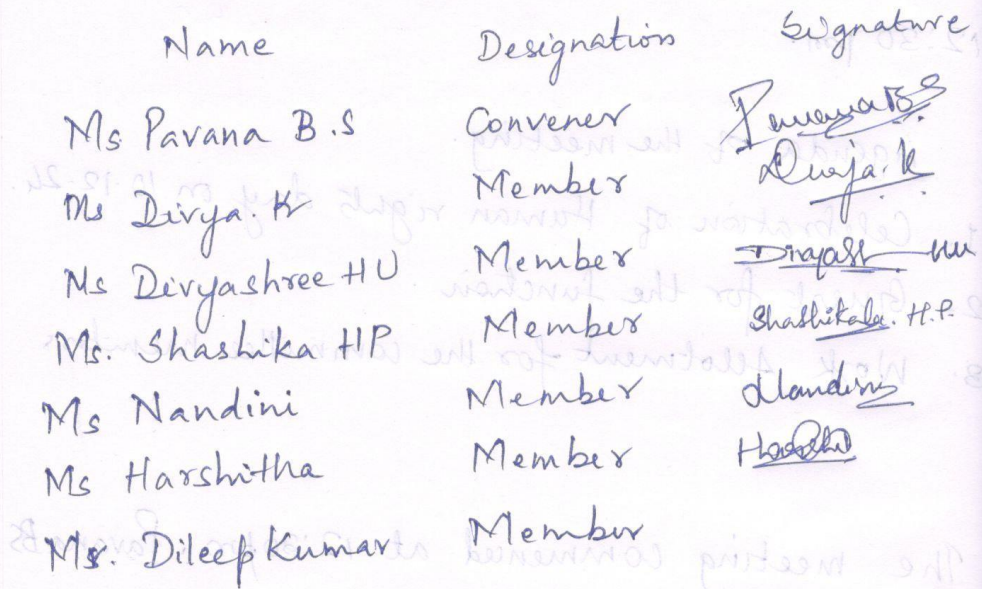 Name Designation Signature
Ms. Pavana B.S Convener Pavana BS
Ms Divya. K Member Divya. K
Ms Divyashree HU Member Divyash HU
Ms. Shashika HP Member Shashikala. H.P.
Ms Nandini Member Nandini
Ms Harshitha Member
Mr. Dileep Kumar Member